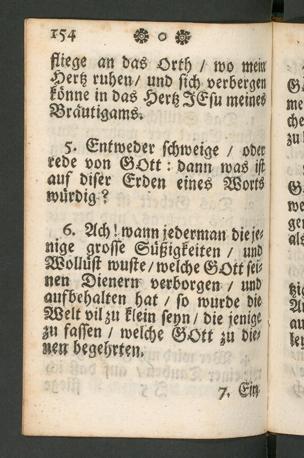 154
fliege an das Orth / wo mein
Hertz ruhen / und sich verbergen
könne in das Hertz JEsu meines
Bräutigams.
5. Entweder schweige / oder
rede von GOtt : dann was ist
auf diser Erden eines Worts
würdig ?
6. Ach ! wann jederman die je-
nige grosse Süßigkeiten / und
Wollust wuste / welche GOtt sei-
nen Dienern verborgen / und
aufbehalten hat / so wurde die
Welt vil zu klein seyn / die jenige
zu fassen / welche GOtt zu die-
nen begehrten.
7. Ein